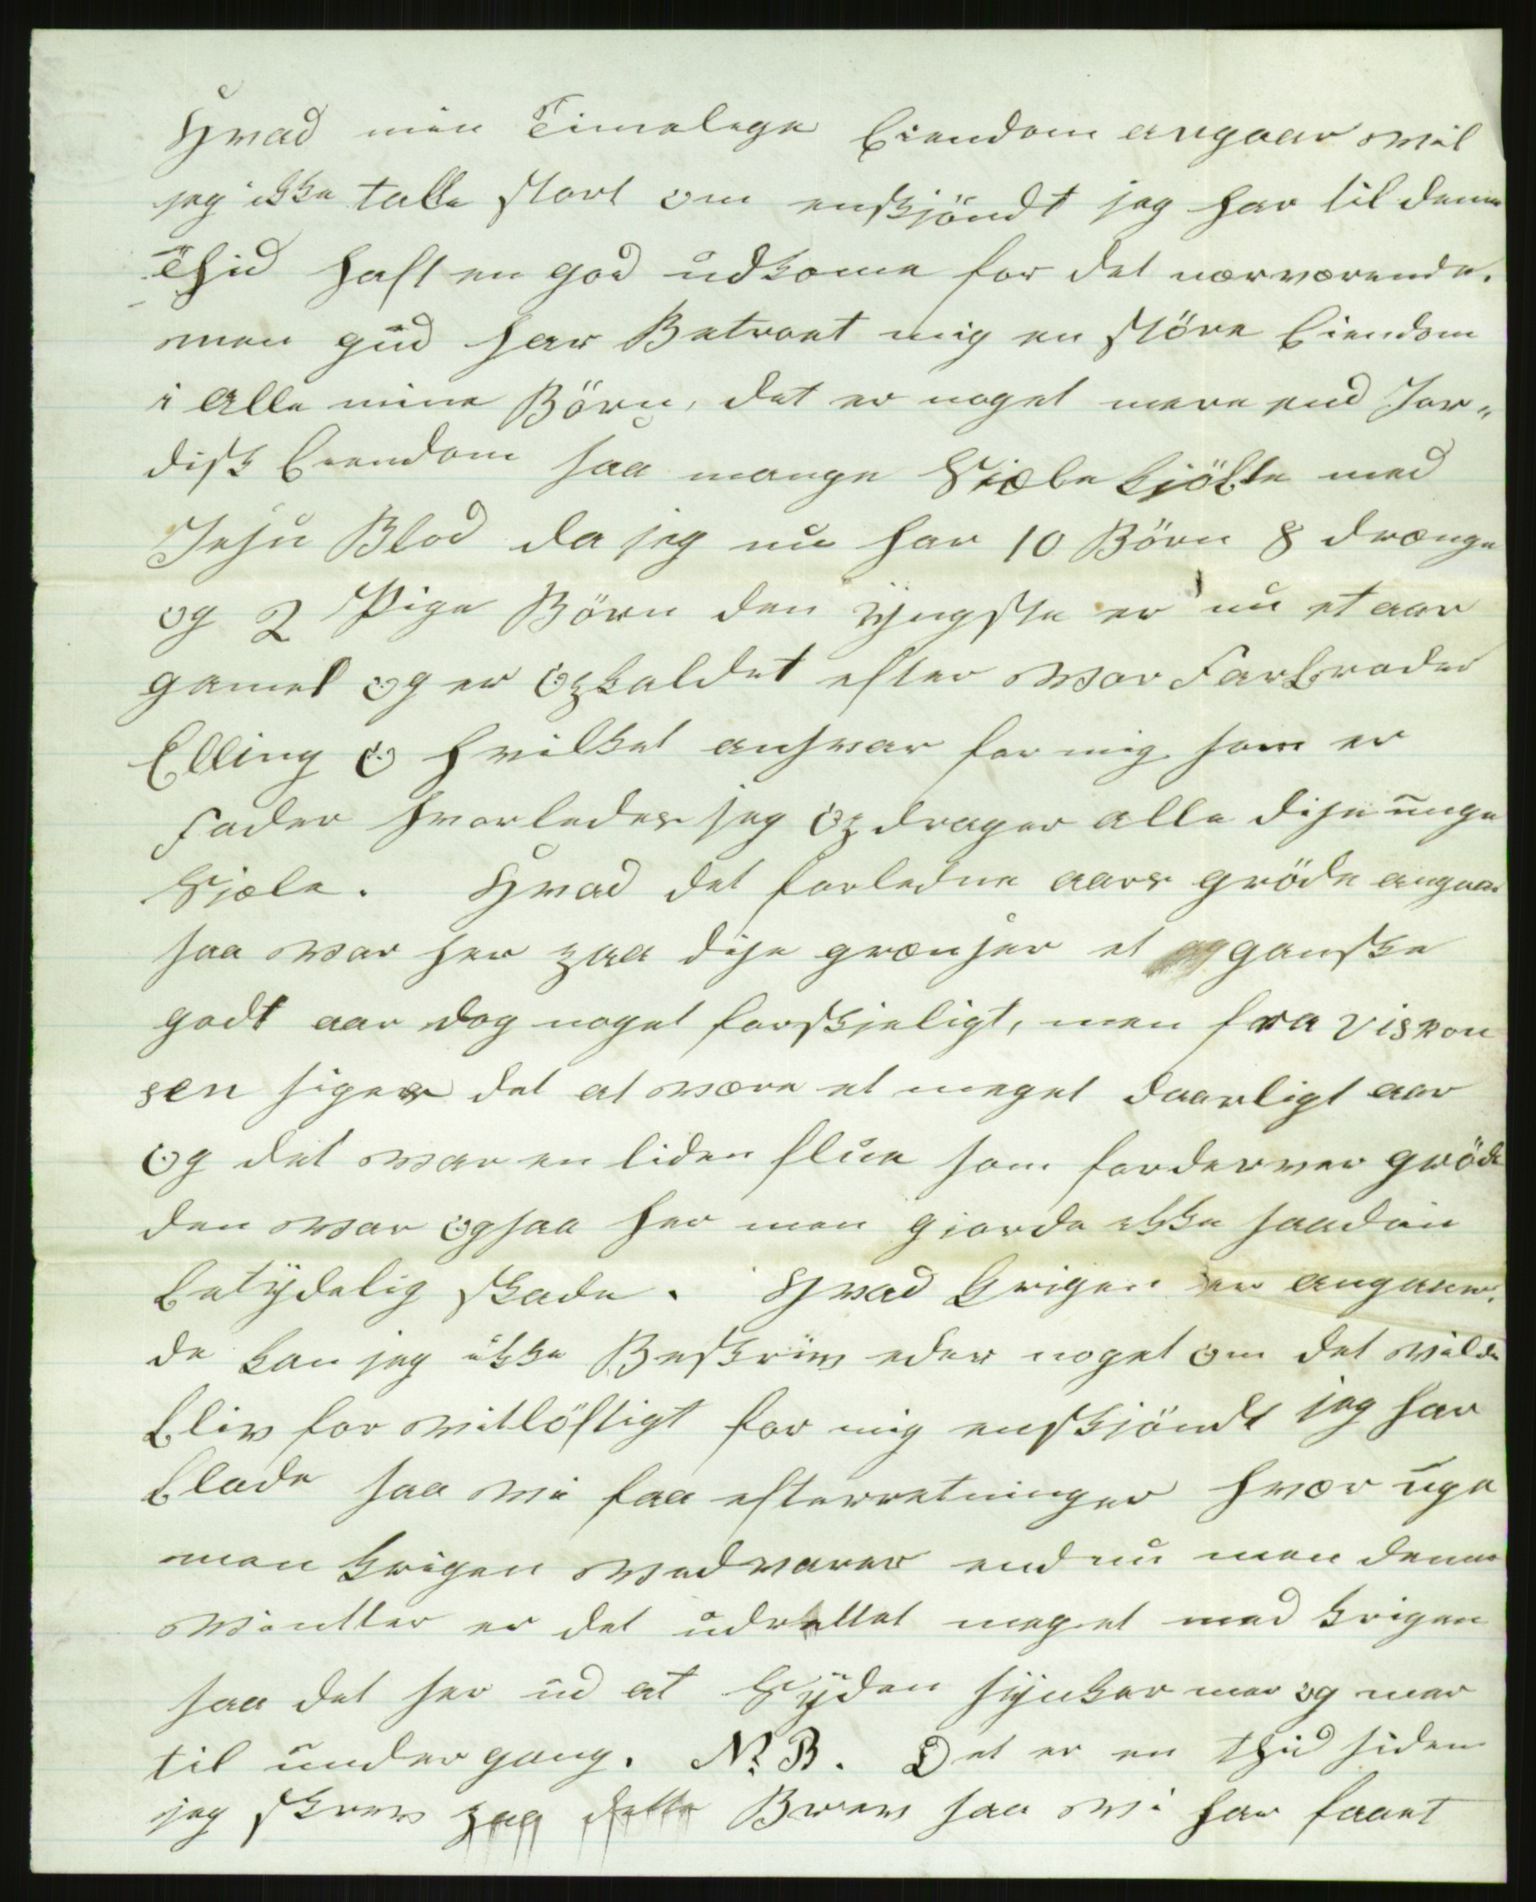 Hvad min Timelege Eiendom angaar vil
jeg ikke talle stort om enskjöndt jeg har til denne
Thid haft en god udkome for det nærværende.
men gud har Betroet mig en störe Eiendom
i alle mine Börn, det er noget mere end Jor-
disk Eiendom saa mange Sjæle kjöbte med
Jesu Blod da jeg nu har 10 Börn 8 drænge
og 2 Pige Börn den yngste er nu et aar
gamel og er opkaldet efter vor Farbroder
Elling O hvilket ansvar for mig som er
Fader hvorledes jeg opdrager alle dise unge
Sjæle. Hvad det forledne aars gröde angaar
saa var her paa dise grænser et ganske
godt aar dog noget forskjeligt, men fra viskon
sen siges det at være et meget daarligt aar
og det var en liden flue som forderver gröde
den var ogsaa her men gjorde ikke saadan
betydelig skade. Hvad Krigen er angaaen-
de kan jeg ikke Beskriv eder noget om det vilde
bliv for vitlöftigt for mig enskjöndt jeg har
blade saa vi faa efterretninger hvær uge
men krigen vedvarer endnu men denne
vintter er det udrettet meget med krigen
saa det ser ud at Syden synker mer og mer
til undergang. N.B. Det er en thid siden
jeg skrev paa dette Brev saa vi har faaet